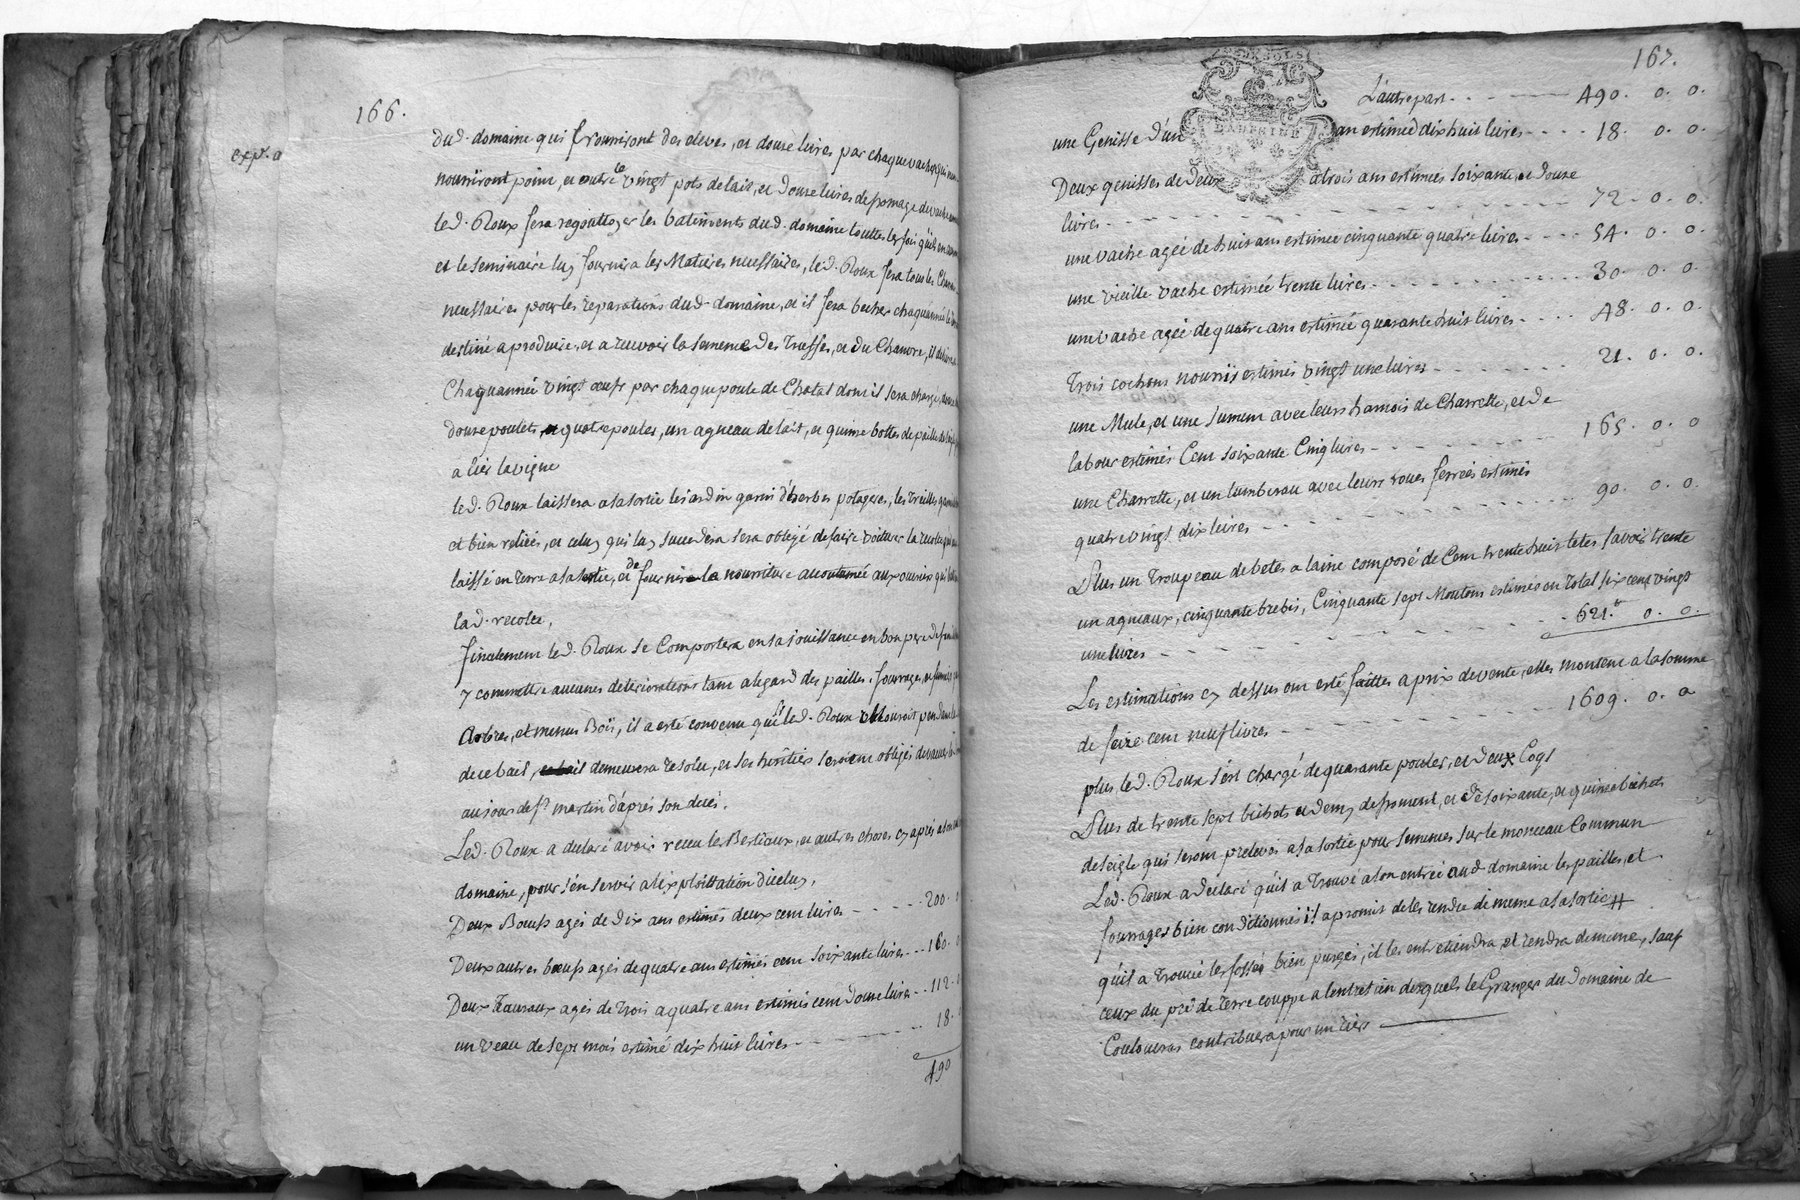 166.
expé. a
dud. domaine qui fourniront des eleves, et douze livres par chaque vache qui n'en
nouriront point, et outre le vingt pots de lait, et douze livres de fromage de vache
led. Roux fera regouttoyer les batiments dud. domaine touttes les fois qu'ils en
et le seminaire luy fournira les Matieres necessaires, led. Roux fera tous les
necessaires pour les reparations dud. domaine, et il fera becher chaqu'année le
destiné a produire, et a recevoir la semence des Truffes, et du Chanvre, il
Chaqu'année vingt œufs par chaque poule de Chatal dont il sera chargé,
douze poulets, et quatre poules, un agneau de lait, et quinze bottes de paille
a lier la vigne
led. Roux laissera a sa sortie le jardin garni d'herbes potageres, les treilles
et bien reliées, et celuy qui luy succedera sera obligé de faire voiturer la recolte
laissé en terre a sa sortie, et de fournir la nourriture accoutumée aux ouvriers qui
lad. recolte,
finalement led. Roux se Comportera en sa jouissance en bon pere de
y commettre aucunes deteriorations tant a legard des pailles, fourrages,
Arbres, et menus Bois, il a esté convenu que si led. Roux decouroit pendant le
de ce bail, demeurera resolu, et ses heritiers seroient obligés
au jour de st martin d'après son decés,
Led. Roux a declaré avoir receu les Bestiaux, et autres choses cy après
domaine, pour s'en servir a l'exploittation d'iceluy,
Deux Bœufs agés de dix ans estimés deux cent livres - - - - - 200.
Deux autres bœufs agés de quatre ans estimés cent soixante livres - - - 160.
Deux Taureaux agés de trois a quatre ans estimés cent douze livres - - 112.
un veau de sept mois estimé dix huit livres - - - - - - 18.
490
167.
DAUPHINÉ
L'autre part - - - 490. 0. 0.
une Genisse d'un an estimée dix huit livres - - - - 18. 0. 0.
Deux genisses de deux a trois ans estimées soixante, et douze
livres - - - - - - 72. 0. 0.
une vache agée de huit ans estimée cinquante quatre livres - - - - 54. 0. 0.
une vieille vache estimée trente livres - - - - - - 30. 0. 0.
une vache agée de quatre ans estimée quarante huit livres - - - - 48. 0. 0.
Trois cochons nourris estimés vingt une livres - - - - - - 21. 0. 0.
une Mule, et une jument avec leurs harnois de Charrette, et de
labour estimés Cent soixante Cinq livres - - - - - 165. 0. 0
une Charrette, et un tumbereau avec leurs roues ferrées estimés
quatre vingt dix livres - - - - - - 90. 0. 0.
Plus un Troupeau de betes a laine composé de Cent trente huit tetes savoir trente
un agneaux, cinquante brebis, Cinquante sept Moutons estimés en total six cent vingt
une livres - - - - - - 621. 0. 0.
Les estimations cy dessus ont esté faittes a prix de vente, elles montent a la somme
de seize cent neuf livres - - - - - - 1609. 0. 0
plus led. Roux s'est chargé de quarante poules, et deux Coqs
Plus de trente sept bichets et demy de froment, et de soixante, et quinze bichets
de seigle qui seront prelevés a sa sortie pour semences sur le monceau Commun
Led. Roux a declaré qu'il a trouvé a son entrée aud. domaine les pailles, et
fourrages bien conditionnés il a promis de les rendre de meme a sa sortie #
qu'il a trouvé les fossés bien purgés, il les entretiendra, et rendra de meme, sauf
ceux du pré de terre couppe a l'entretien desquels le Granger du domaine de
Coulouvras contribuera pour un tiers